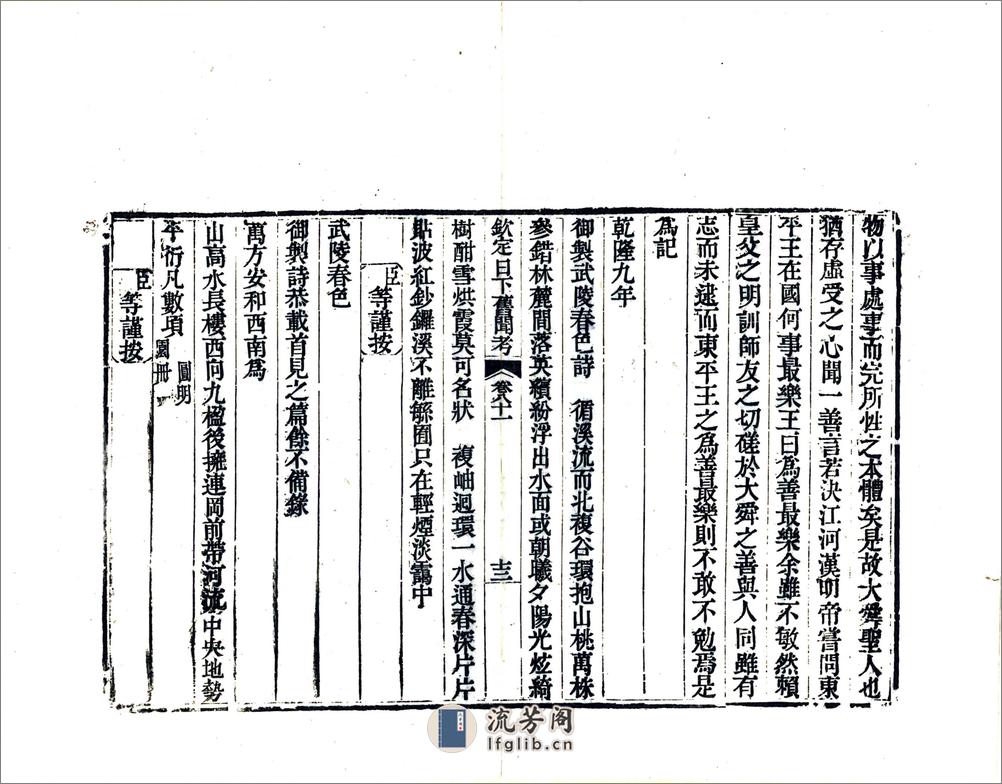 物以事處事而完所性之本體矣是故大舜聖人也
猶存虛受之心聞一善言若決江河漢明帝嘗問東
平王在國何事最樂王曰爲善最樂余雖不敏然賴
皇父之明訓師友之切磋於大舜之善與人同雖有
志而未逮而東平王之爲善最樂則不敢不勉焉是
爲記
乾隆九年
御製武陵春色詩　循溪流而北複谷環抱山桃萬株
參錯林麓間落英繽紛浮出水面或朝曦夕陽光炫綺
欽定日下舊聞考　卷八十一　十三
樹酣雪烘霞莫可名狀　複岫迴環一水通春深片片
貼波紅鈔鑼溪不離繇囿只在輕煙淡靄中
臣等謹按
武陵春色
御製詩恭載首見之篇餘不備錄
萬方安和西南爲
山高水長樓西向九楹後擁連岡前帶河流中央地勢
平衍凡數頃圓明
園冊
臣等謹按
流芳阁
lfglib.cn